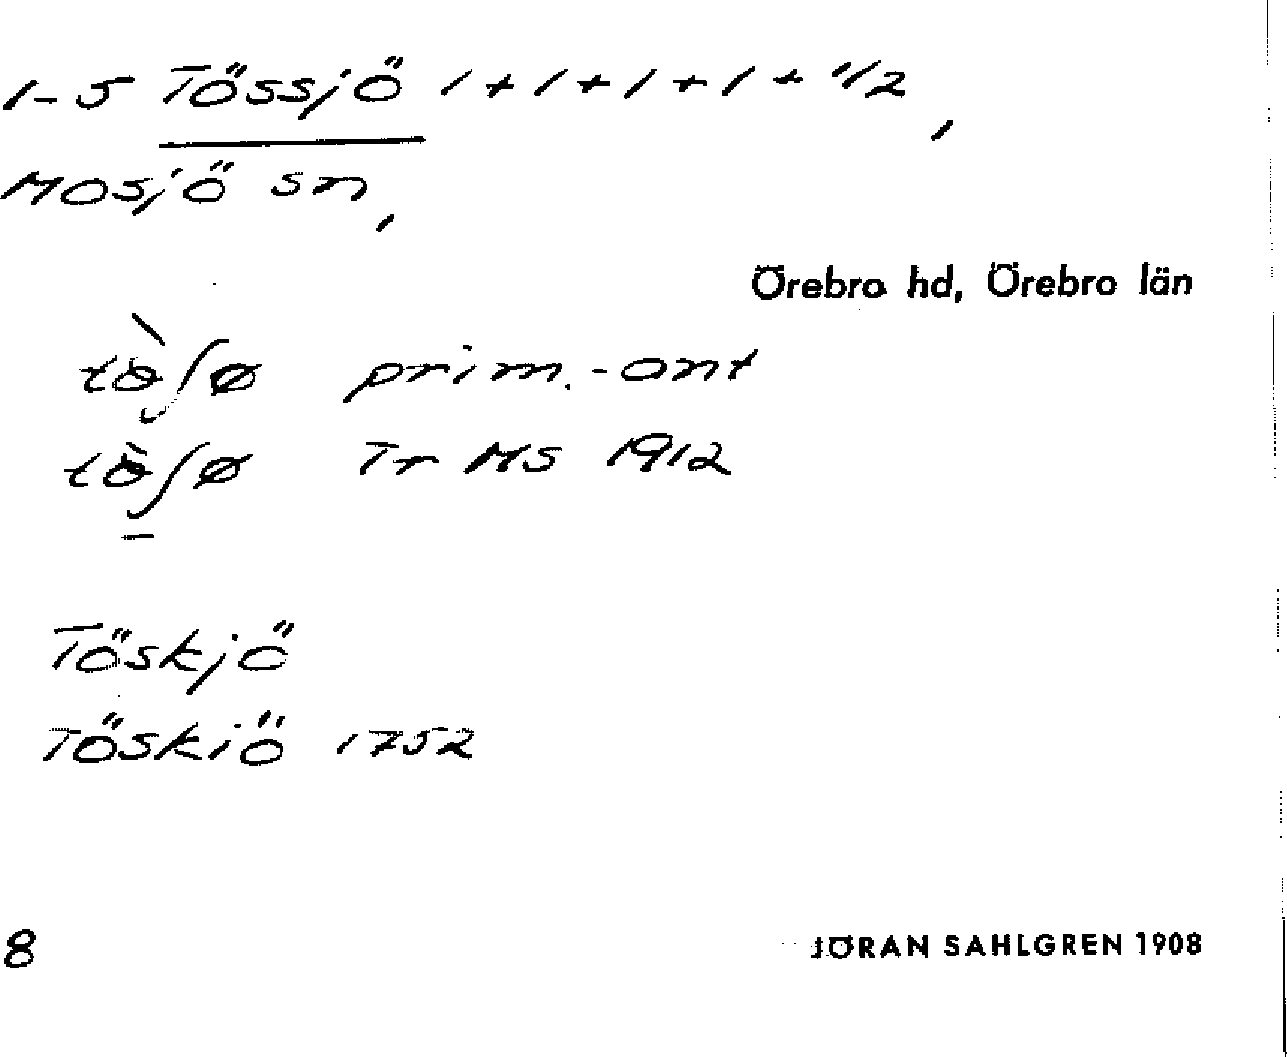 1-5 Tössjö 1+1+1+1+1/2,
Mosjö sn,
Örebro hd, Örebro län
prim.-ant
Tr MS 1912
Töskjö
Töskiö 1752
8
JÖRAN SAHLGREN 1908